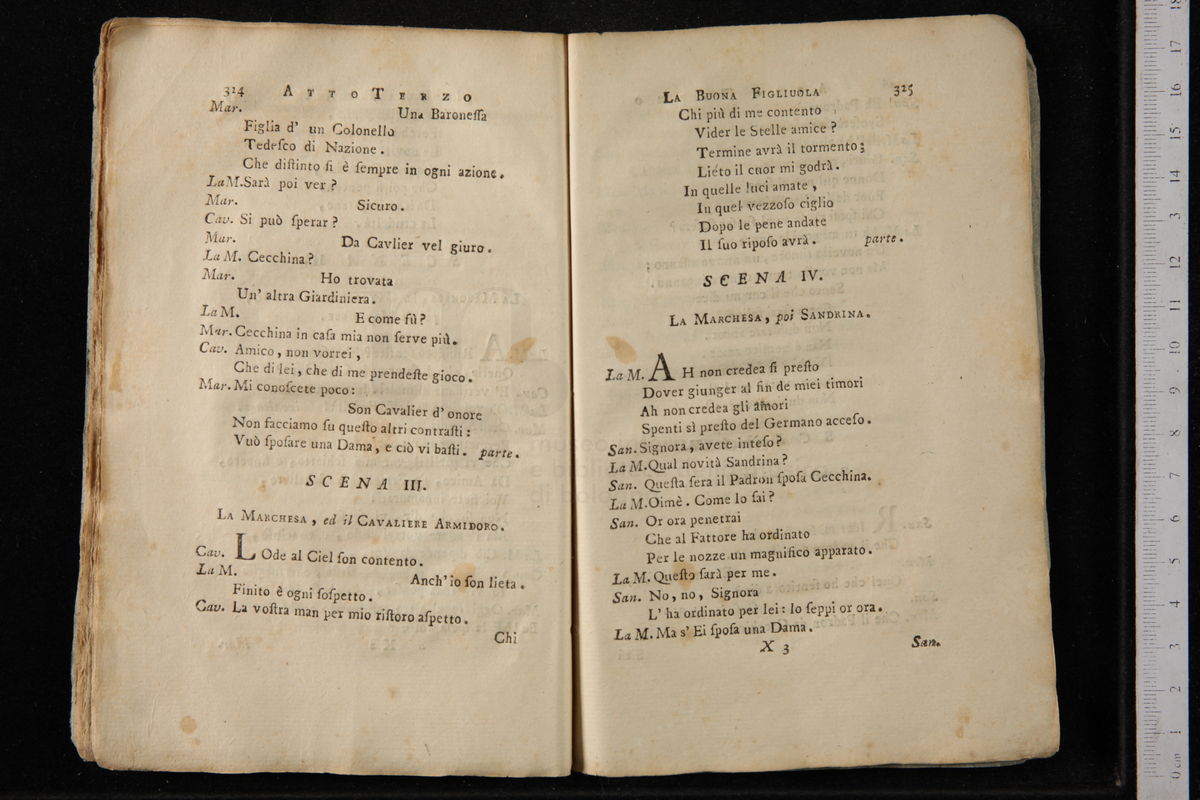 324 ATTO TERZO
Mar. Una Baronessa
Figlia d' un Colonello
Tedesco di Nazione.
Che distinto si è sempre in ogni azione.
La M. Sarà poi ver?
Mar. Sicuro.
Cav. Si può sperar?
Mar. Da Cavlier vel giuro.
La M. Cecchina?
Mar. Ho trovata
Un' altra Giardiniera.
La M. E come fù?
Mar. Cecchina in casa mia non serve più.
Cav. Amico, non vorrei,
Che di lei, che di me prendeste gioco.
Mar. Mi conoscete poco:
Son Cavalier d' onore
Non facciamo su questo altri contrasti:
Vuò sposare una Dama, e ciò vi basti. parte.
SCENA III.
LA MARCHESA, ed il CAVALIERE ARMIDORO.
Cav. LOde al Ciel son contento.
La M. Anch' io son lieta.
Finito è ogni sospetto.
Cav. La vostra man per mio ristoro aspetto.
Chi
LA BUONA FIGLIUOLA 325
Chi più di me contento
Vider le Stelle amice?
Termine avrà il tormento;
Liéto il cuor mi godrà.
In quelle luci amate,
In quel vezzoso ciglio
Dopo le pene andate
Il suo riposo avrà. parte.
SCENA IV.
LA MARCHESA, poi SANDRINA.
La M. AH non credea si presto
Dover giunger al fin de miei timori
Ah non credea gli amori
Spenti sì presto del Germano acceso.
San. Signora, avete inteso?
La M. Qual novità Sandrina?
San. Questa sera il Padron sposa Cecchina.
La M. Oimè. Come lo sai?
San. Or ora penetrai
Che al Fattore ha ordinato
Per le nozze un magnifico apparato.
La M. Questo sarà per me.
San. No, no, Signora
L' ha ordinato per lei: lo seppi or ora.
La M. Ma s' Ei sposa una Dama.
X 3 San.
0 cm 1 2 3 4 5 6 7 8 9 10 11 12 13 14 15 16 17 18